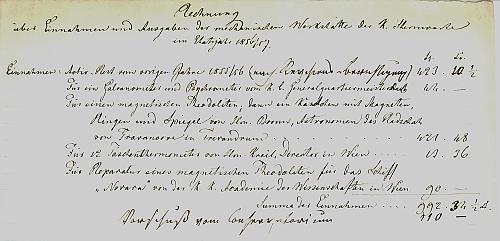 Rechnung
über Einnahmen und Ausgaben der mechanischen Werkstätte der K. Sternwarte
im Etatsjahr 1856/57.
fl. xr.
Einnahmen: Activ-Rest vom vorigen Jahre 1855/56 (nach Revisions-Berichtigung) 423. 10 ½
Für ein Galvanometer und Psychrometer vom K. b. Generalquartiermeisterstab 44. —
Für einen magnetischen Theodoliten, dann ein Kästchen mit Magneten,
Ringen und Spiegel von Hrn. Broun, Astronomen des Radschah
von Travancore in Trevandrum 421. 48
Für 12 Taschenthermometer von Hrn. Kreil, Director in Wien 13. 36
Für Reparatur eines magnetischen Theodoliten für das Schiff
„Novara" von der K. K. Academie der Wissenschaften in Wien 90. —
Summa der Einnahmen 992. 34 ½
Vorschuß vom Conservatorium 110 —